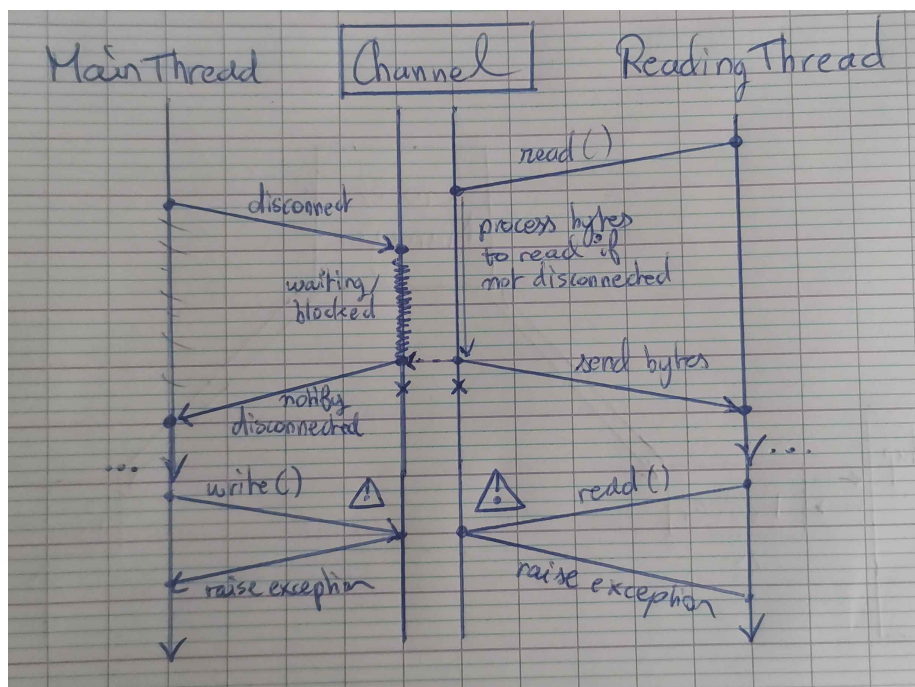 Main Thredd
Channel
Reading Thread
read()
disconnect
process bytes
to read if
not disconnected
waiting/
blocked
send bytes
notify
disconnected
...
...
write()
!
!
read()
raise exception
raise exception